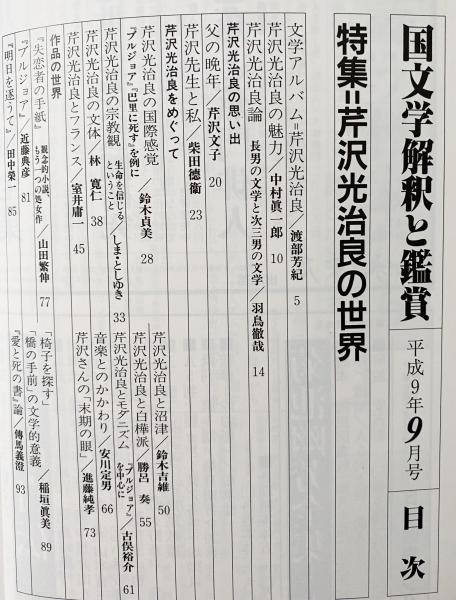 国文学解釈と鑑賞 平成9年9月号 目次
特集=芹沢光治良の世界
文学アルバム=芹沢光治良/渡部芳紀 5
芹沢光治良の魅力/中村眞一郎 10
芹沢光治良論 長男の文学と次三男の文学/羽鳥徹哉 14
芹沢光治良の思い出
父の晩年/芹沢文子 20
芹沢先生と私/柴田徳衞 23
芹沢光治良をめぐって
芹沢光治良の国際感覚
『ブルジョア』『巴里に死す』を例に/鈴木貞美 28
芹沢光治良の宗教観 生命を信じるということ/しま・としゆき 33
芹沢光治良の文体/林寛仁 38
芹沢光治良とフランス/室井庸一 45
芹沢光治良と沼津/鈴木吉維 50
芹沢光治良と白樺派/勝呂奏 55
芹沢光治良とモダニズム 『ブルジョア』を中心に/古俣裕介 61
音楽とのかかわり/安川定男 66
芹沢さんの「末期の眼」/進藤純孝 73
作品の世界
『失恋者の手紙』 観念的小説、もう一つの処女作/山田繁伸 77
『ブルジョア』/近藤典彦 81
『明日を逐うて』/田中榮一 85
「椅子を探す」
「橋の手前」の文学的意義/稲垣眞美 89
『愛と死の書』論/傳馬義澄 93